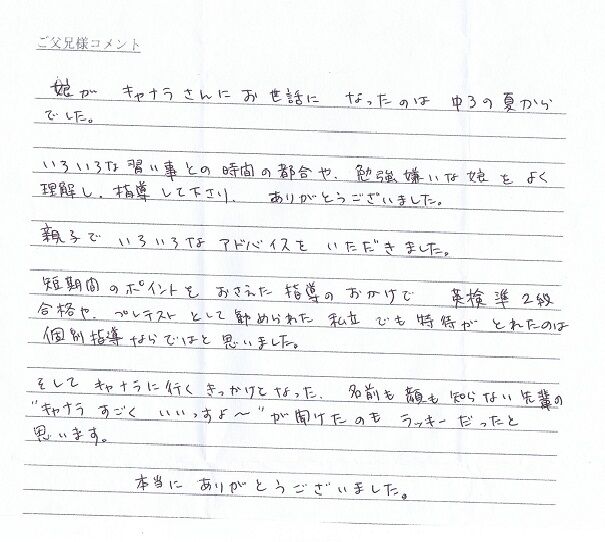 ご父兄様コメント
娘が キャナラさんに お世話に なったのは 中3の夏から
でした。
いろいろな習い事との時間の都合や、勉強嫌いな娘をよく
理解し、指導して下さり、 ありがとうございました。
親子で いろいろな アドバイスを いただきました。
短期間のポイントを おさえた 指導の おかげで 英検準2級
合格や、プレテストとして勧められた 私立でも特待が とれたのは
個別指導ならではと思いました。
そして キャナラに行く きっかけとなった、名前も顔も知らない先輩の
"キャナラ すごく いいっすよ～"が聞けたのも ラッキーだったと
思います。
本当に ありがとうございました。